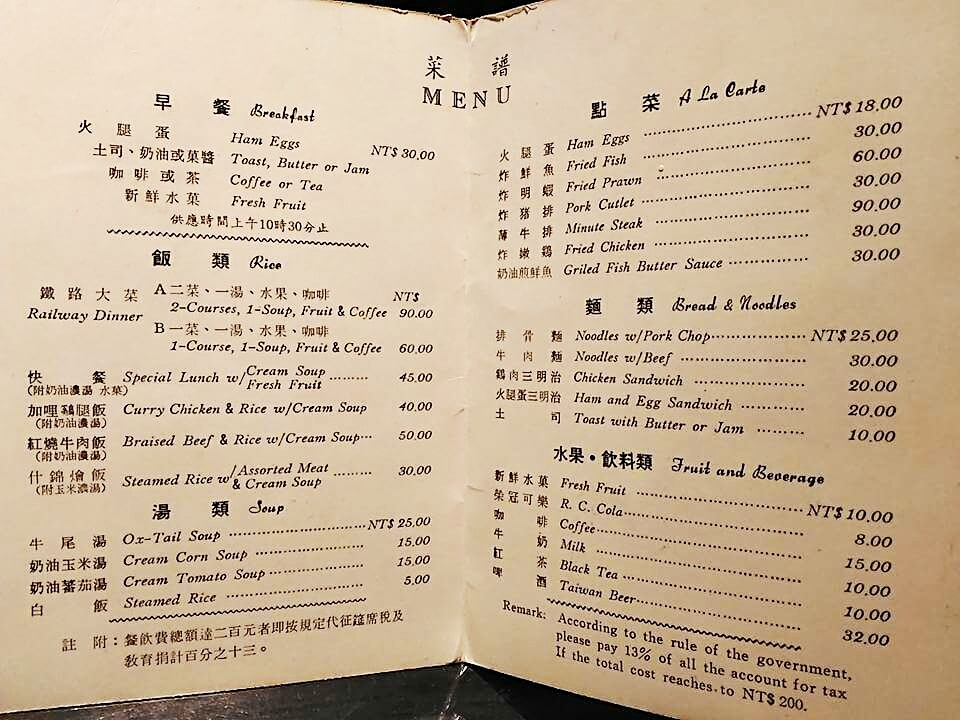 菜譜
MENU
早餐 Breakfast
火腿蛋 Ham Eggs
土司、奶油或菓醬 Toast, Butter or Jam NT$30.00
咖啡或茶 Coffee or Tea
新鮮水菓 Fresh Fruit
供應時間上午10時30分止
飯類 Rice
鐵路大菜 A二菜、一湯、水果、咖啡 NT$
Railway Dinner 2-Courses, 1-Soup, Fruit & Coffee 90.00
B一菜、一湯、水果、咖啡
1-Course, 1-Soup, Fruit & Coffee 60.00
快餐 Special Lunch w/Cream Soup Fresh Fruit ......... 45.00
(附奶油濃湯 水菓)
加哩鷄腿飯 Curry Chicken & Rice w/Cream Soup 40.00
(附奶油濃湯)
紅燒牛肉飯 Braised Beef & Rice w/Cream Soup... 50.00
(附奶油濃湯)
什錦燴飯 Steamed Rice w/Assorted Meat & Cream Soup ......... 30.00
(附玉米濃湯)
湯類 Soup
牛尾湯 Ox-Tail Soup ..................... NT$25.00
奶油玉米湯 Cream Corn Soup ..................... 15.00
奶油蕃茄湯 Cream Tomato Soup ..................... 15.00
白飯 Steamed Rice ..................... 5.00
註附：餐飲費總額達二百元者即按規定代征筵席稅及
敎育捐計百分之十三。
點菜 A La Carte
火腿蛋 Ham Eggs ..................... NT$18.00
炸鮮魚 Fried Fish ..................... 30.00
炸明蝦 Fried Prawn ..................... 60.00
炸豬排 Pork Cutlet ..................... 30.00
薄牛排 Minute Steak ..................... 90.00
炸嫩鷄 Fried Chicken ..................... 30.00
奶油煎鮮魚 Griled Fish Butter Sauce ............ 30.00
麵類 Bread & Noodles
排骨麵 Noodles w/Pork Chop............... NT$25.00
牛肉麵 Noodles w/Beef ..................... 30.00
鷄肉三明治 Chicken Sandwich ..................... 20.00
火腿蛋三明治 Ham and Egg Sandwich ............ 20.00
土司 Toast with Butter or Jam ......... 10.00
水果・飲料類 Fruit and Beverage
新鮮水菓 Fresh Fruit ..................... NT$10.00
榮冠可樂 R. C. Cola..................... 8.00
咖啡 Coffee..................... 15.00
牛奶 Milk ..................... 10.00
紅茶 Black Tea ..................... 10.00
啤酒 Taiwan Beer..................... 32.00
Remark: According to the rule of the government,
please pay 13% of all the account for tax
If the total cost reaches to NT$ 200.